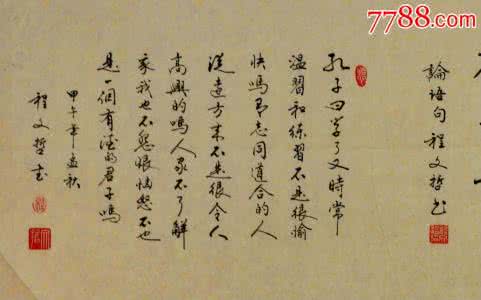 7788.com
論语句 程文哲书
孔子曰学了又時常
温習和练習不是很愉
快嗎有志同道合的人
從遠方来不是很令人
高興的嗎人家不了解
家我也不怨恨恼怒不也
是一個有德的君子嗎
甲午年孟秋
程文哲书